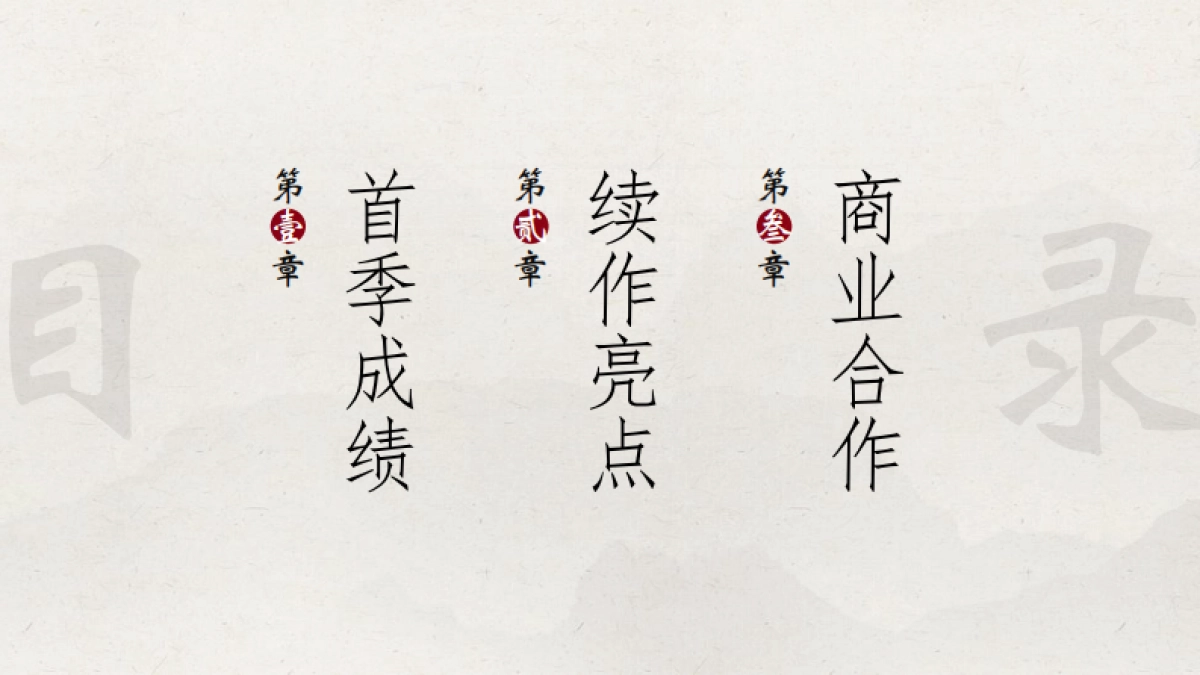 目录
第壹章
首季成绩
第贰章
续作亮点
第叁章
商业合作